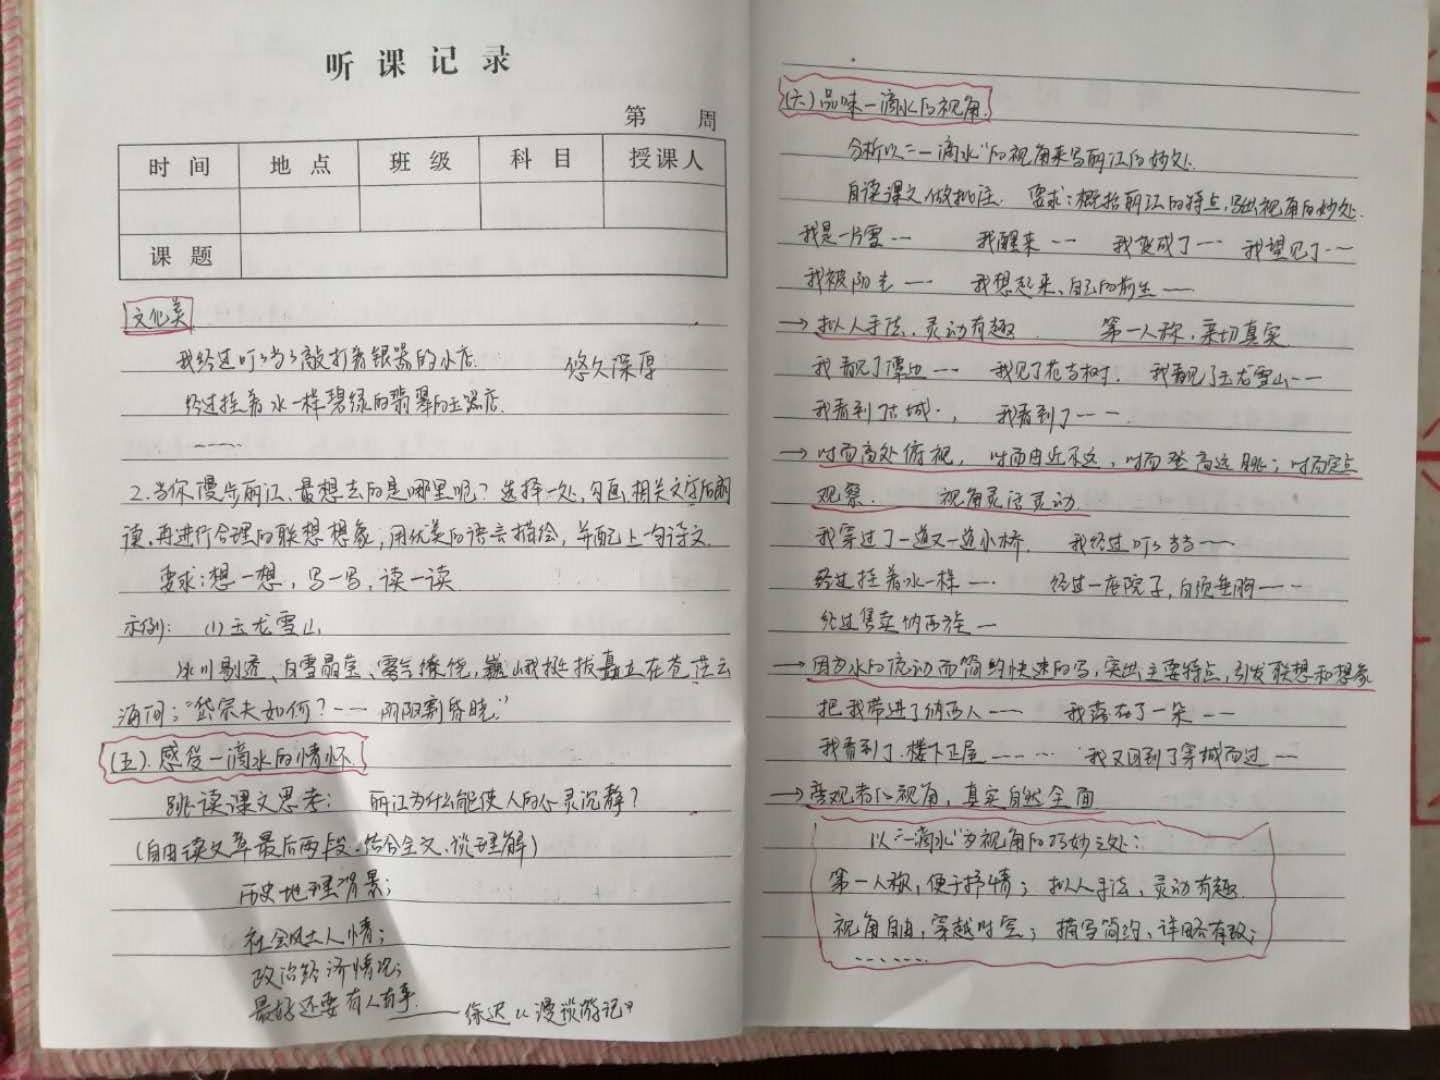 听课记录
第 周
时间 地点 班级 科目 授课人
课题
文化美
我经过叮叮当当敲打着银器的小店.
悠久深厚
经过挂着水一样碧绿的翡翠的玉器店.
……
2.当你漫步丽江、最想去的是哪里呢?选择一处,勾画相关文字后朗
读,再进行合理的联想想象,用优美的语言描绘,并配上一句诗文.
要求:想一想,写一写,读一读
示例: (1)玉龙雪山
冰川剔透、白雪晶莹、雾气缭绕,巍峨挺拔矗立在苍茫云
海间;“岱宗夫如何?……阴阳割昏晓.”
(五).感受一滴水的情怀.
跳读课文思考: 丽江为什么能使人的心灵沉静?
(自由读文章最后两段、结合全文、谈理解)
历史地理背景;
社会风土人情;
政治经济情况;
最好还要有人有事.——徐迟《漫谈游记》
(六)品味一滴水的视角.
分析以“一滴水”的视角来写丽江的妙处.
自读课文,做批注. 要求:概括丽江的特点,写出视角的妙处.
我是一片雪…… 我醒来…… 我变成了…… 我望见了……
我被阳光…… 我想起来、自己的前生……
→拟人手法,灵动有趣 第一人称,亲切真实.
我看见了潭边…… 我见了花与树. 我看见了玉龙雪山……
我看到古城…, 我看到了……
→时而高处俯视, 时而由近及远,时而登高远眺;时而定点
观察. 视角灵活灵动.
我穿过了一道又一道小桥. 我经过叮叮当当……
经过挂着水一样…… 经过一座院子,白须垂胸……
经过售卖纳西族…
→因为水的流动而简约快速的写,突出主要特点,引发联想和想象
把我带进了纳西人…… 我落在了一朵……
我看到了.楼下正屋…… 我又回到了穿城而过…
→旁观者的视角,真实自然全面
以“一滴水”为视角的巧妙之处:
第一人称,便于抒情; 拟人手法,灵动有趣.
视角自由,穿越时空; 描写简约,详略有致;
……